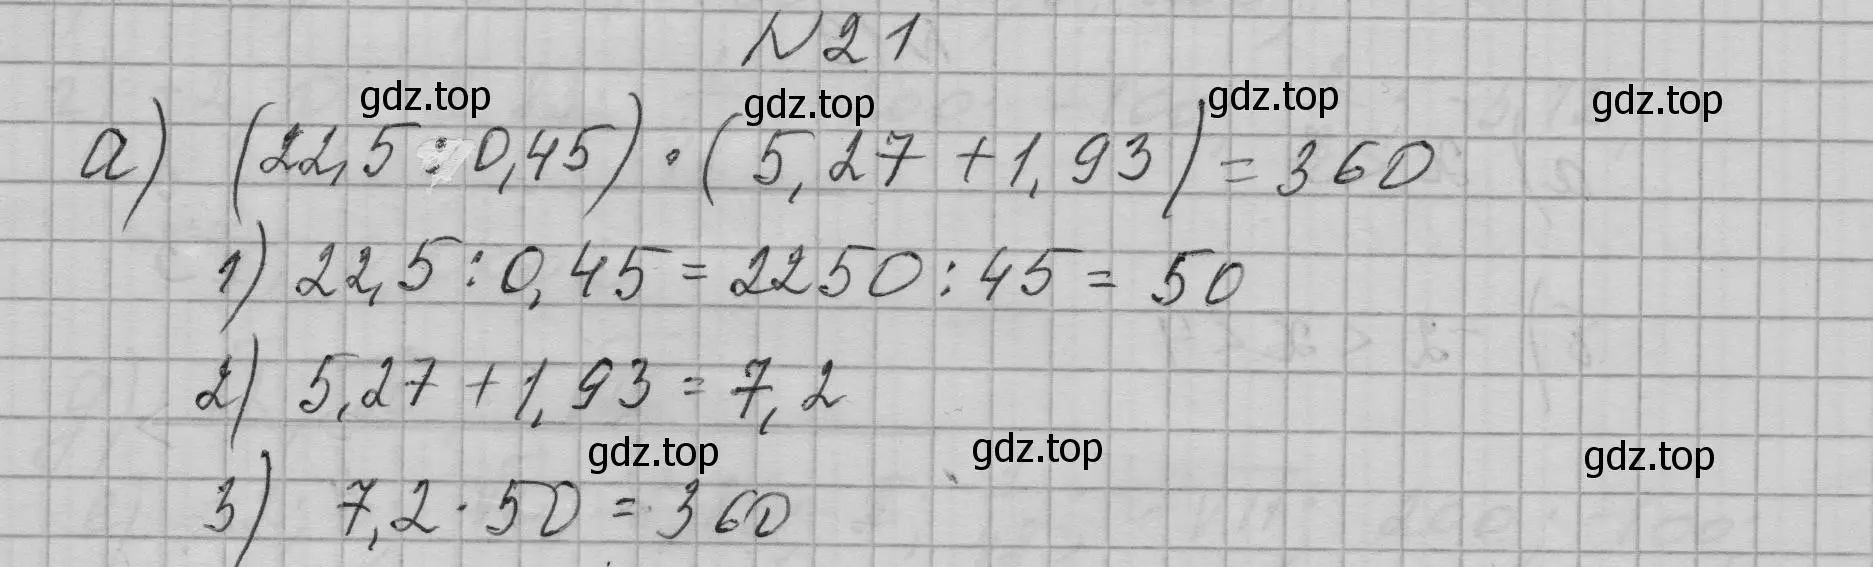 N 21
gdz.top gdz.top gdz.top gdz.top
а) (22,5 : 0,45) · (5,27 + 1,93) = 360
1) 22,5 : 0,45 = 2250 : 45 = 50
2) 5,27 + 1,93 = 7,2
gdz.top gdz.top gdz.top
3) 7,2 · 50 = 360